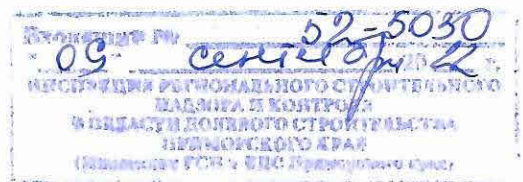 Входящий № 52-5030
09 сентября 2022 г.
ИНСПЕКЦИЯ РЕГИОНАЛЬНОГО СТРОИТЕЛЬНОГО
НАДЗОРА И КОНТРОЛЯ
В ОБЛАСТИ ДОЛЕВОГО СТРОИТЕЛЬСТВА
ПРИМОРСКОГО КРАЯ
(Инспекция РСН и КДС Приморского края)